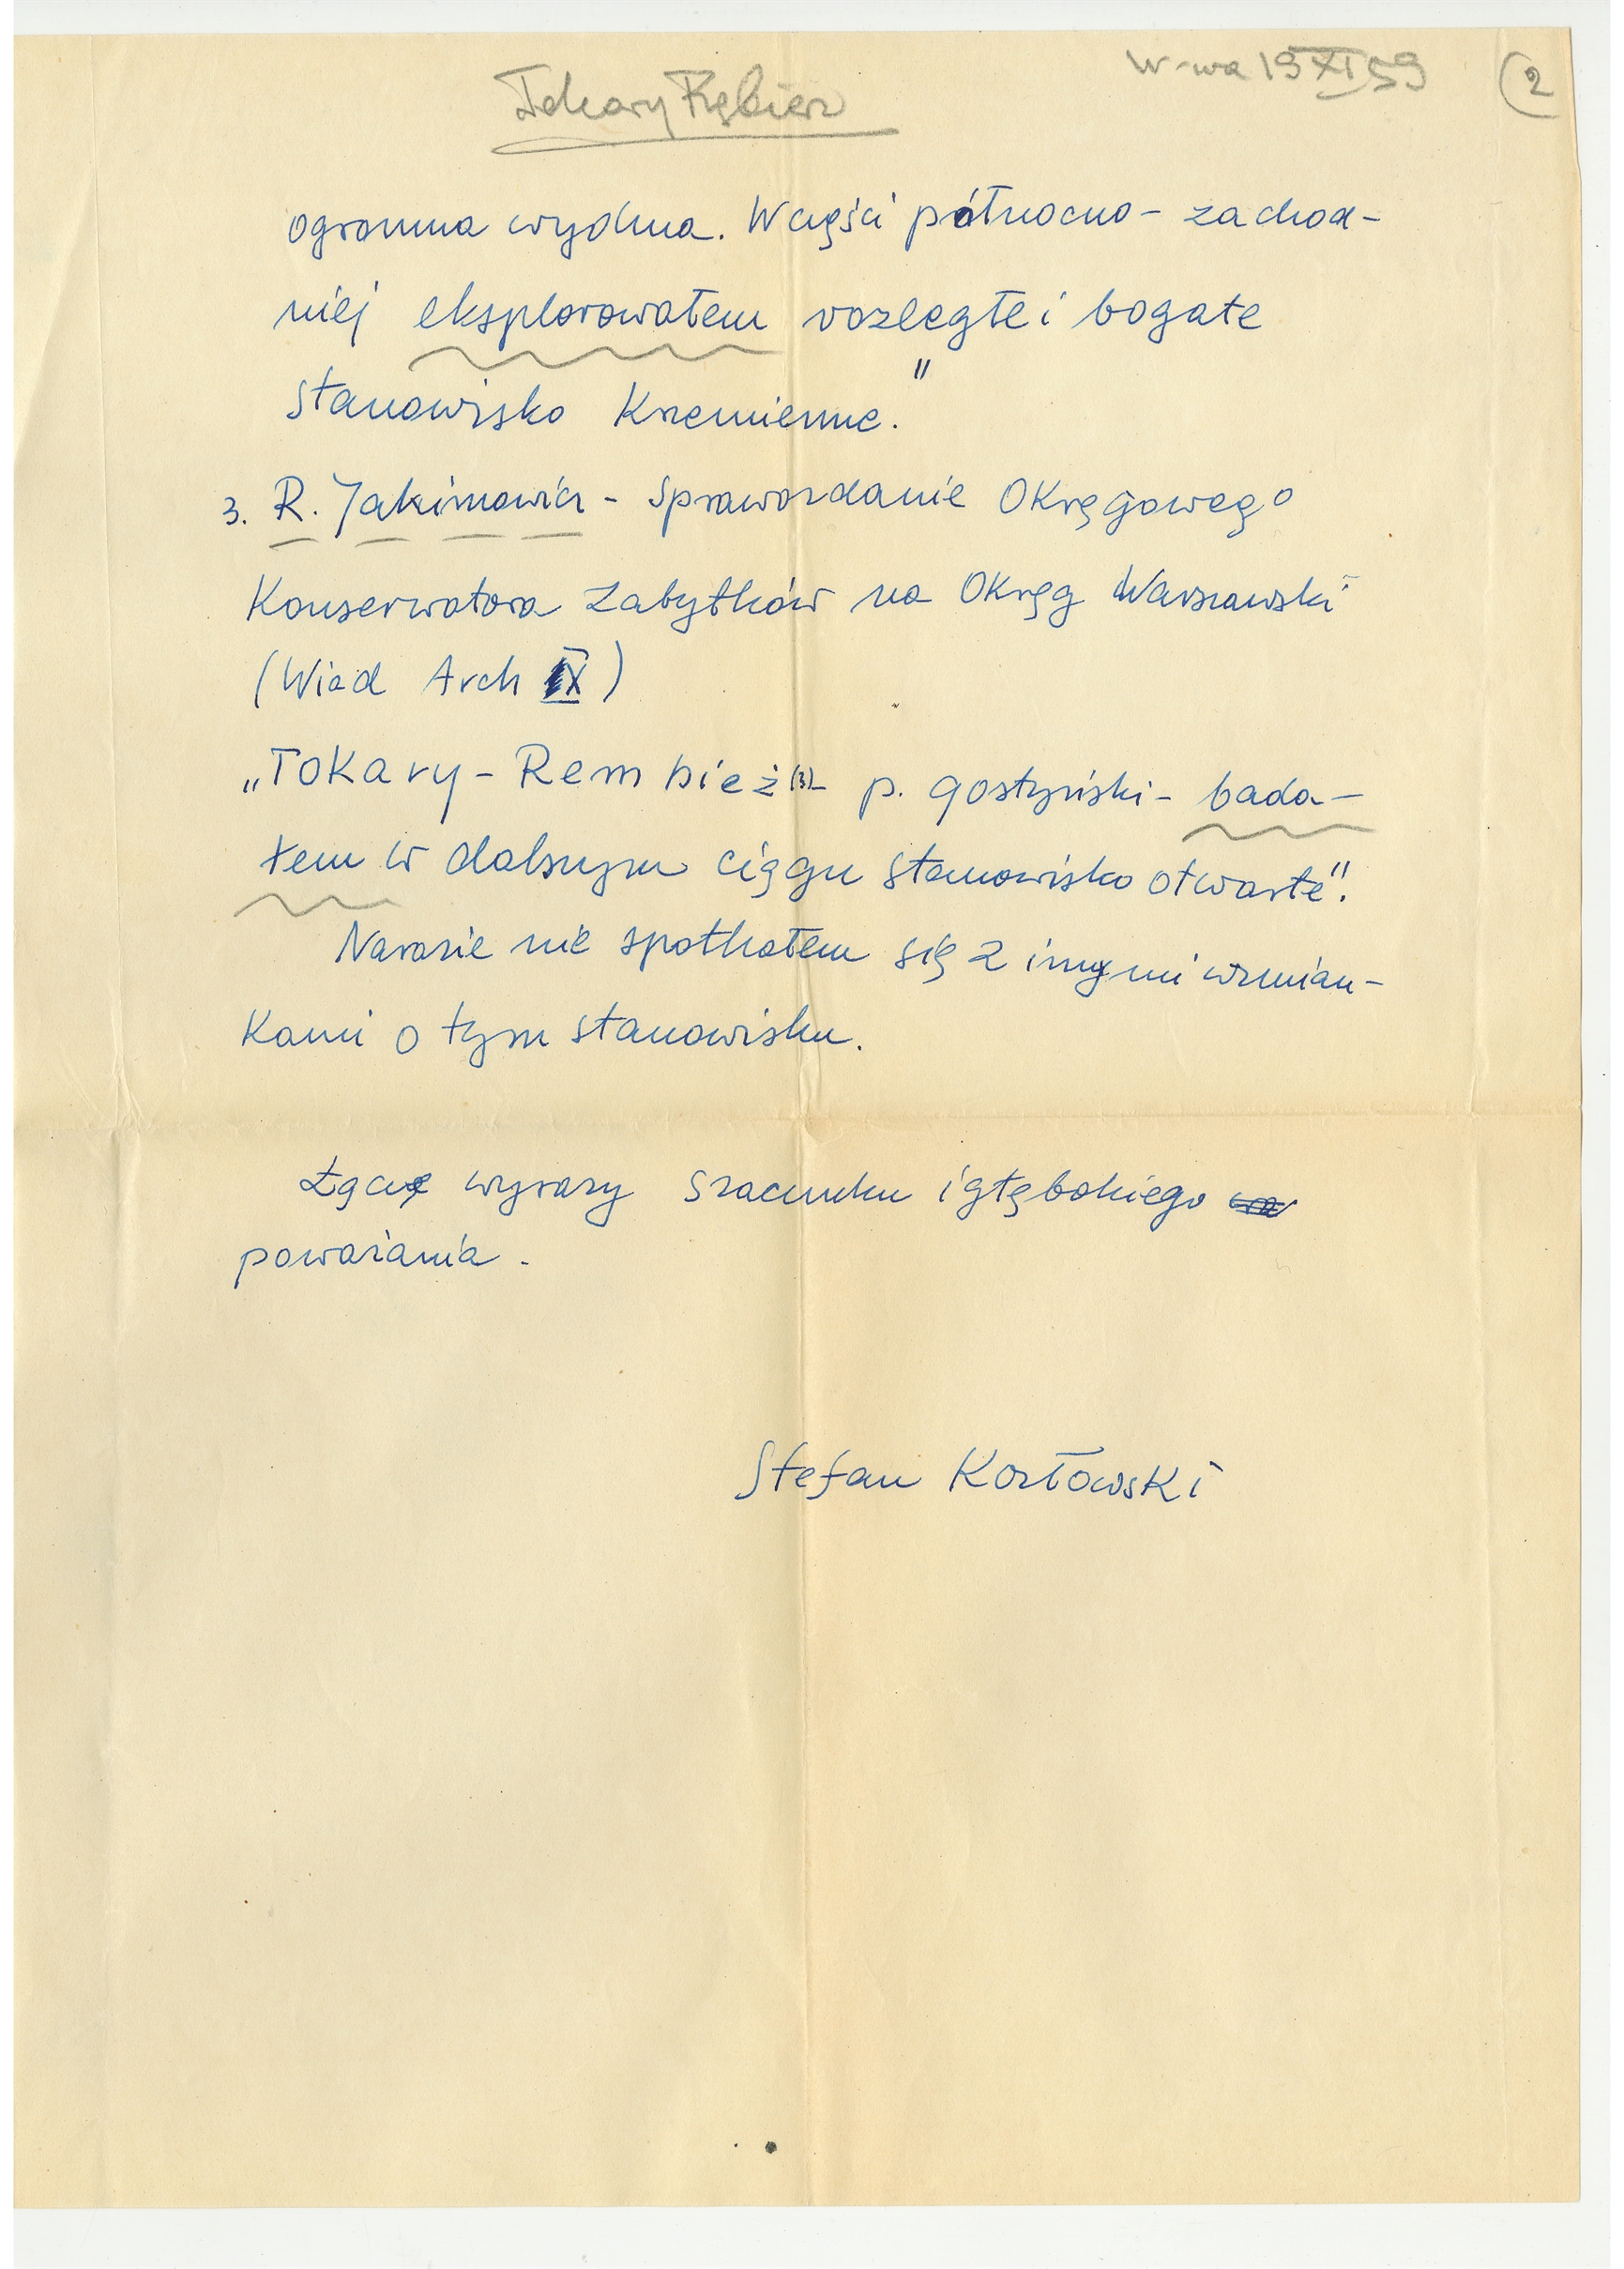 W-wa 19 XI 59
2
Tokary Rębierz
ogromna wydma. W części północno - zachod-
niej eksplorowałem rozległe i bogate
stanowisko Krzemienne."
3. R. Jakimowicz - Sprawozdanie Okręgowego
Konserwatora Zabytków na Okręg Warszawski
(Wiad Arch IX)
„Tokary - Rembież (3) - p. gostyński - bada-
łem w dalszym ciągu stanowisko otwarte".
Narazie nie spotkałem się z innymi wzmian-
Kami o tym stanowisku.
Łączę wyrazy szacunku i głębokiego
poważania.
Stefan Kozłowski